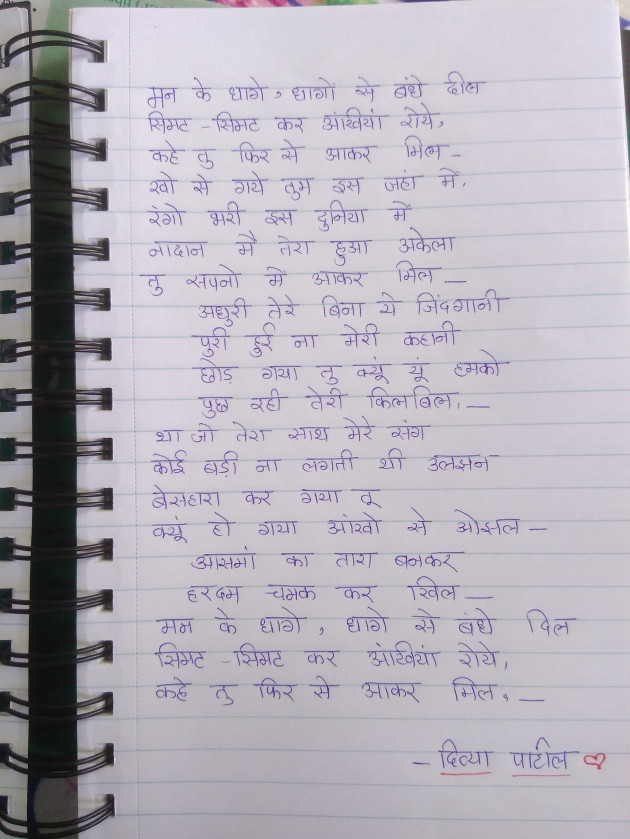 मन के धागे, धागों से बंधे दील
सिमट - सिमट कर आंखियां रोये,
कहे तु फिर से आकर मिल -
खो से गये तुम इस जहां में,
रंगो भरी इस दुनिया में
नादान मै तेरा हुआ अकेला
तु सपनो में आकर मिल -
अधुरी तेरे बिना ये जिंदगानी
पुरी हुई ना मेरी कहानी
छोड़ गया तु क्यूं यूं हमको
पुछ रही तेरी किलबिल, -
था जो तेरा साथ मेरे संग
कोई बड़ी ना लगती थी उलझन
बेसहारा कर गया तू
क्यूं हो गया आंखो से ओझल -
आसमां का तारा बनकर
हरदम चमक कर खिल -
मन के धागे, धागे से बंधे दिल
सिमट - सिमट कर आंखियां रोये,
कहे तु फिर से आकर मिल, -
- दिव्या पाटील ♡